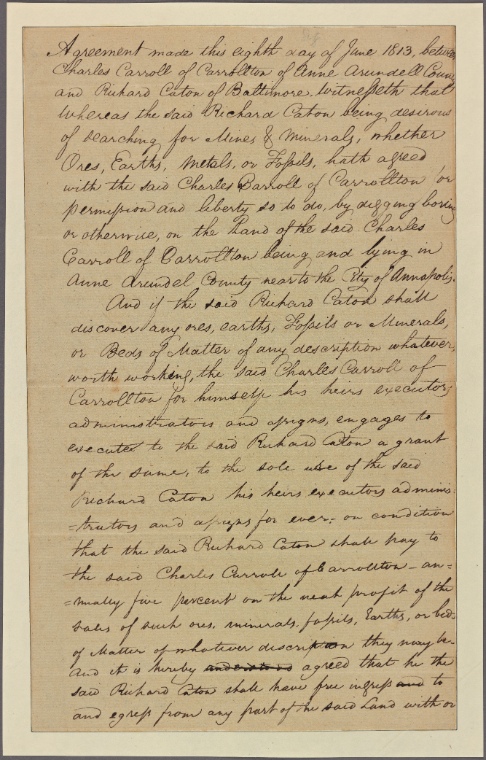 Agreement made this eighth day of June 1813, between
Charles Carroll of Carrollton of Anne Arundell County
and Richard Caton of Baltimore, Witnesseth that
Whereas the said Richard Caton being desirous
of searching for Mines & Minerals, whether
Ores, Earths, Metals, or Fossils, hath agreed
with the said Charles Carroll of Carrollton or
permission and liberty so to do, by digging boring
or otherwise, on the Land of the said Charles
Carroll of Carrollton being and lying in
Anne Arundel County near to the City of Annapolis.
And if the said Richard Caton shall
discover any ores, earths, Fossils or Minerals,
or Beds of Matter of any description whatever,
worth working, the said Charles Carroll of
Carrollton for himself his heirs executors
administrators and assigns, engages to
execute to the said Richard Caton a grant
of the same, to the sole use of the said
Richard Caton his heirs executors adminis
=trators and assigns for ever: on condition
that the said Richard Caton shall pay to
the said Charles Carroll of Carrollton - an=
=nually five percent on the neat profit of the
sales of such ores, minerals, fossils, Earths, or beds
of Matter of whatever description they may be
And it is hereby understood agreed that he the
said Richard Caton shall have free ingress and to
and egress from any part of the said Land with or